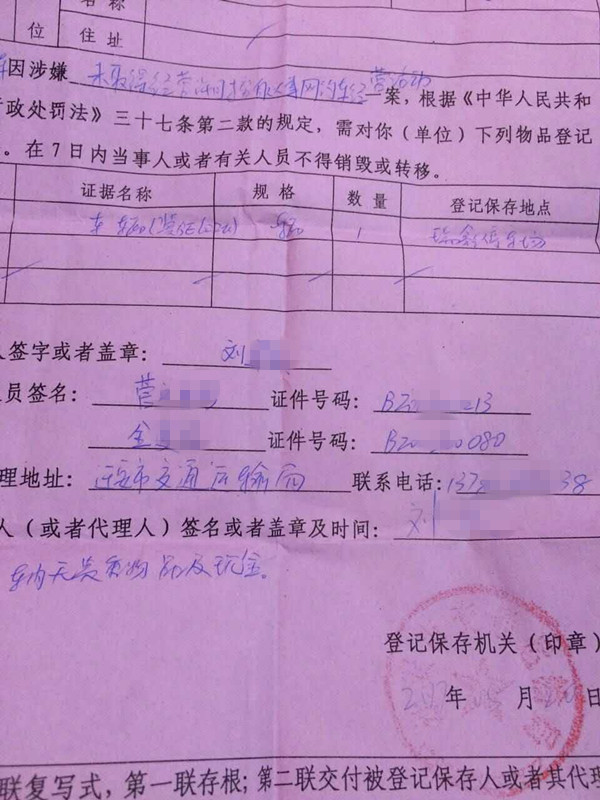 名称
位 住址
因涉嫌 未取得经营许可擅自从事网约车经营活动 案，根据《中华人民共和
政处罚法》三十七条第二款的规定，需对你（单位）下列物品登记
。在7日内当事人或者有关人员不得销毁或转移。
证据名称 规格 数量 登记保存地点
车辆 辆 1 停车场
人签字或者盖章： 刘
员签名： 菅 证件号码： B2 213
金 证件号码： B2 080
理地址： 迁安市交通运输局 联系电话： 137 38
人（或者代理人）签名或者盖章及时间： 刘
车内无贵重物品及现金。
登记保存机关（印章）
年 月 日
联复写式，第一联存根；第二联交付被登记保存人或者其代理